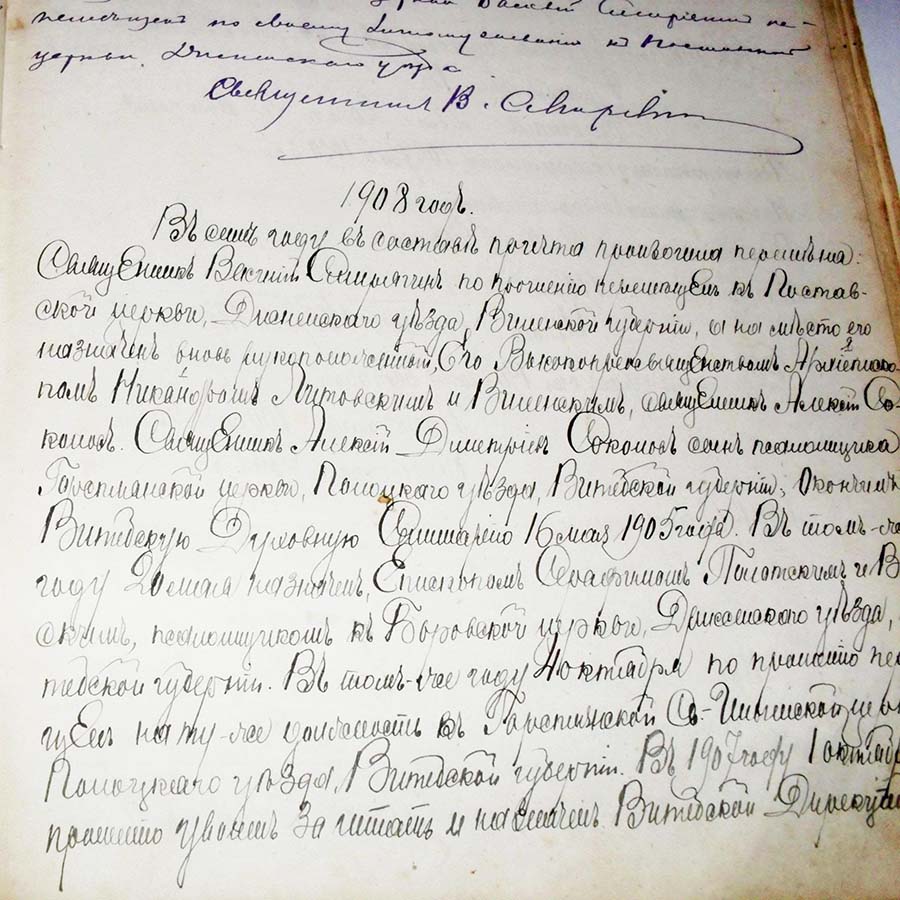 по своему
церкви, Дисненскаго уѣзда
Священникъ В. Смирягинъ
1908 годъ.
Въ семъ году въ составѣ причта произошла перемѣна:
Священникъ Василій Смирягинъ по прошенію перемѣщенъ къ Постав-
ской церкви, Дисненскаго уѣзда, Виленской губерніи, а на мѣсто его
назначенъ вновь рукоположенный, Его Высокопреосвященствомъ Архіеписко-
помъ Никандромъ Литовскимъ и Виленскимъ, священникъ Алексій Со-
коловъ. Священникъ Алексій Димитріевъ Соколовъ сынъ псаломщика
церкви, Полоцкаго уѣзда, Витебской губерніи; Окончилъ
Витебскую Духовную Семинарію 16 мая 1905 года. Въ томъ-же
году 20 мая назначенъ, Епископомъ Серафимомъ Полотскимъ и В
скимъ, псаломщикомъ къ Боровской церкви, Дриссенскаго уѣзда,
тебской губерніи. Въ томъ-же году 4 октября по прошенію пер
щенъ на ту-же должность къ церк
Полоцкаго уѣзда, Витебской губерніи. Въ 1907 году 1 октября
прошенію уволенъ За штатъ и назначенъ Витебской